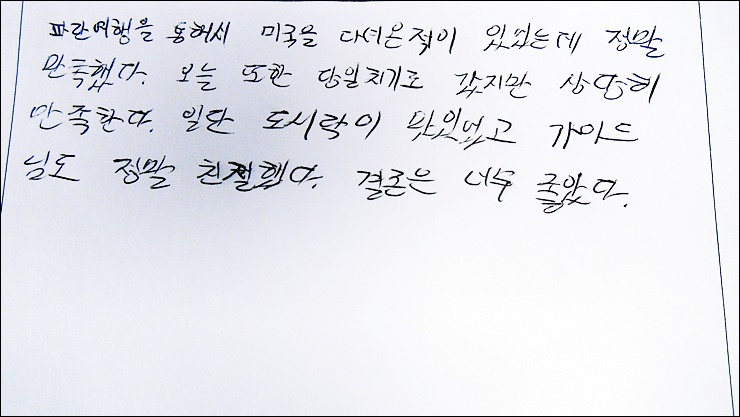 파란여행을 통해서 미국을 다녀온적이 있었는데 정말
만족했다. 오늘 또한 당일치기로 갔지만 상당히
만족한다. 일단 도시락이 맛있었고 가이드
님도 정말 친절했다. 결론은 너무 좋았다.